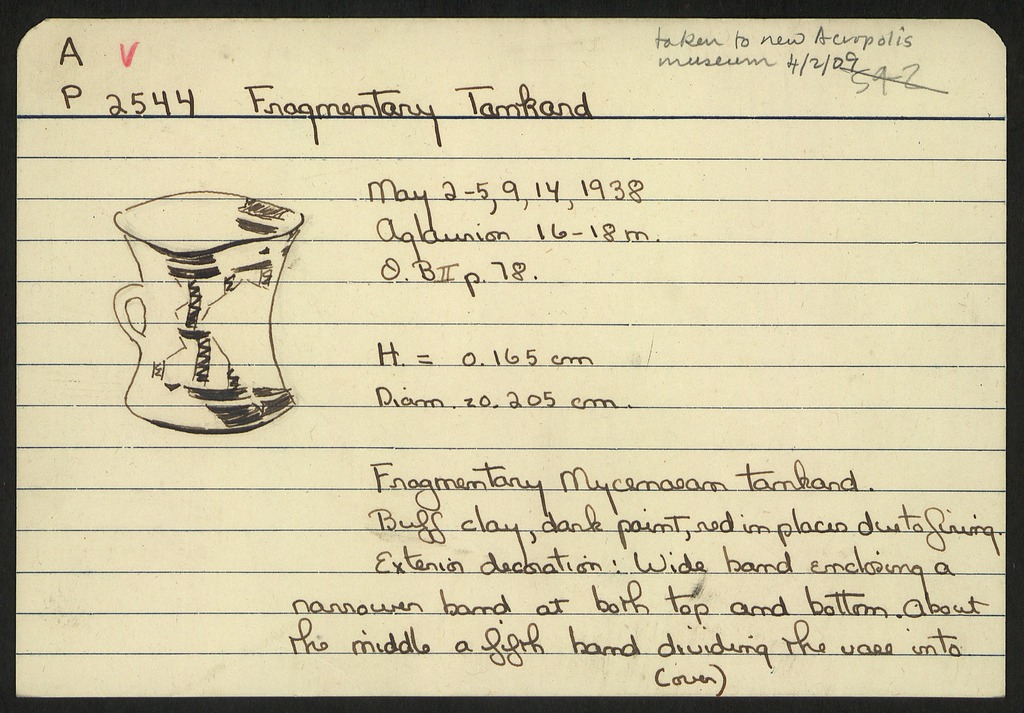 A V
taken to new Acropolis
museum 4/2/09
542
P 2544 Fragmentary Tankard
May 2-5, 9, 14, 1938
Aglaurion 16-18 m.
O. BII p. 78.
H. = 0.165 cm
Diam. = 0.205 cm.
Fragmentary Mycenaean tankard.
Buff clay, dark paint, red in places due to firing.
Exterior decoration: Wide band enclosing a
narrower band at both top and bottom. About
the middle a fifth band dividing the vase into
(over)